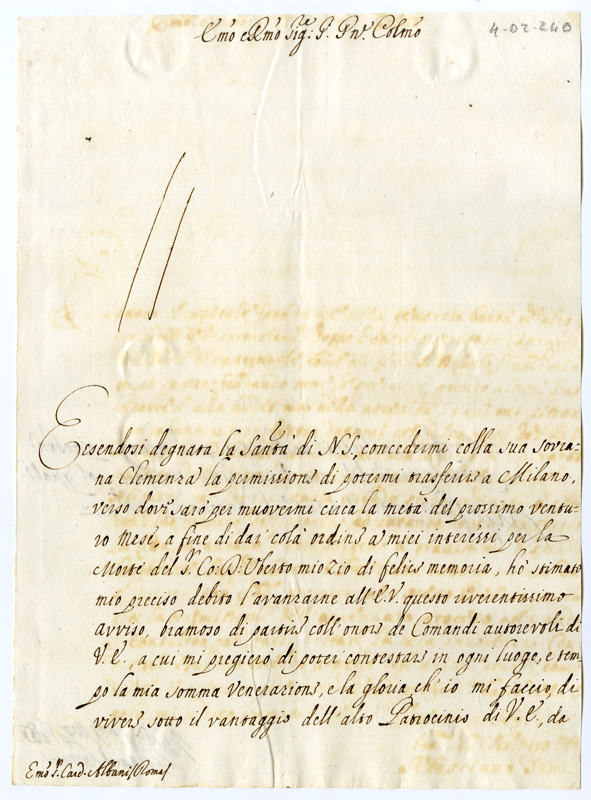 Emo e Rmo Sig.e P. Pne. Colmo
4-02-240
Essendosi degnata la Santtà di N.S. concedermi colla sua sovra-
na Clemenza la permissione di potermi trasferire a Milano,
verso dove sarò per muovermi circa la metà del prossimo ventu-
ro mese, a fine di dar colà ordine a miei interessi per la
Morte del S.r Co: D. Uberto mio Zio di felice memoria, hò stimato
mio preciso debito l'avanzarne all'E.V. questo riverentissimo
avviso, bramoso di partire coll'onore de Comandi autorevoli di
V.E., a cui mi pregierò di poter contestare in ogni luogo, e tem-
po la mia somma venerazione, e la gloria ch'io mi faccio, di
vivere sotto il vantaggio dell'alto Patrocinio di V.E., da
Emo S.r Card. Albani Roma